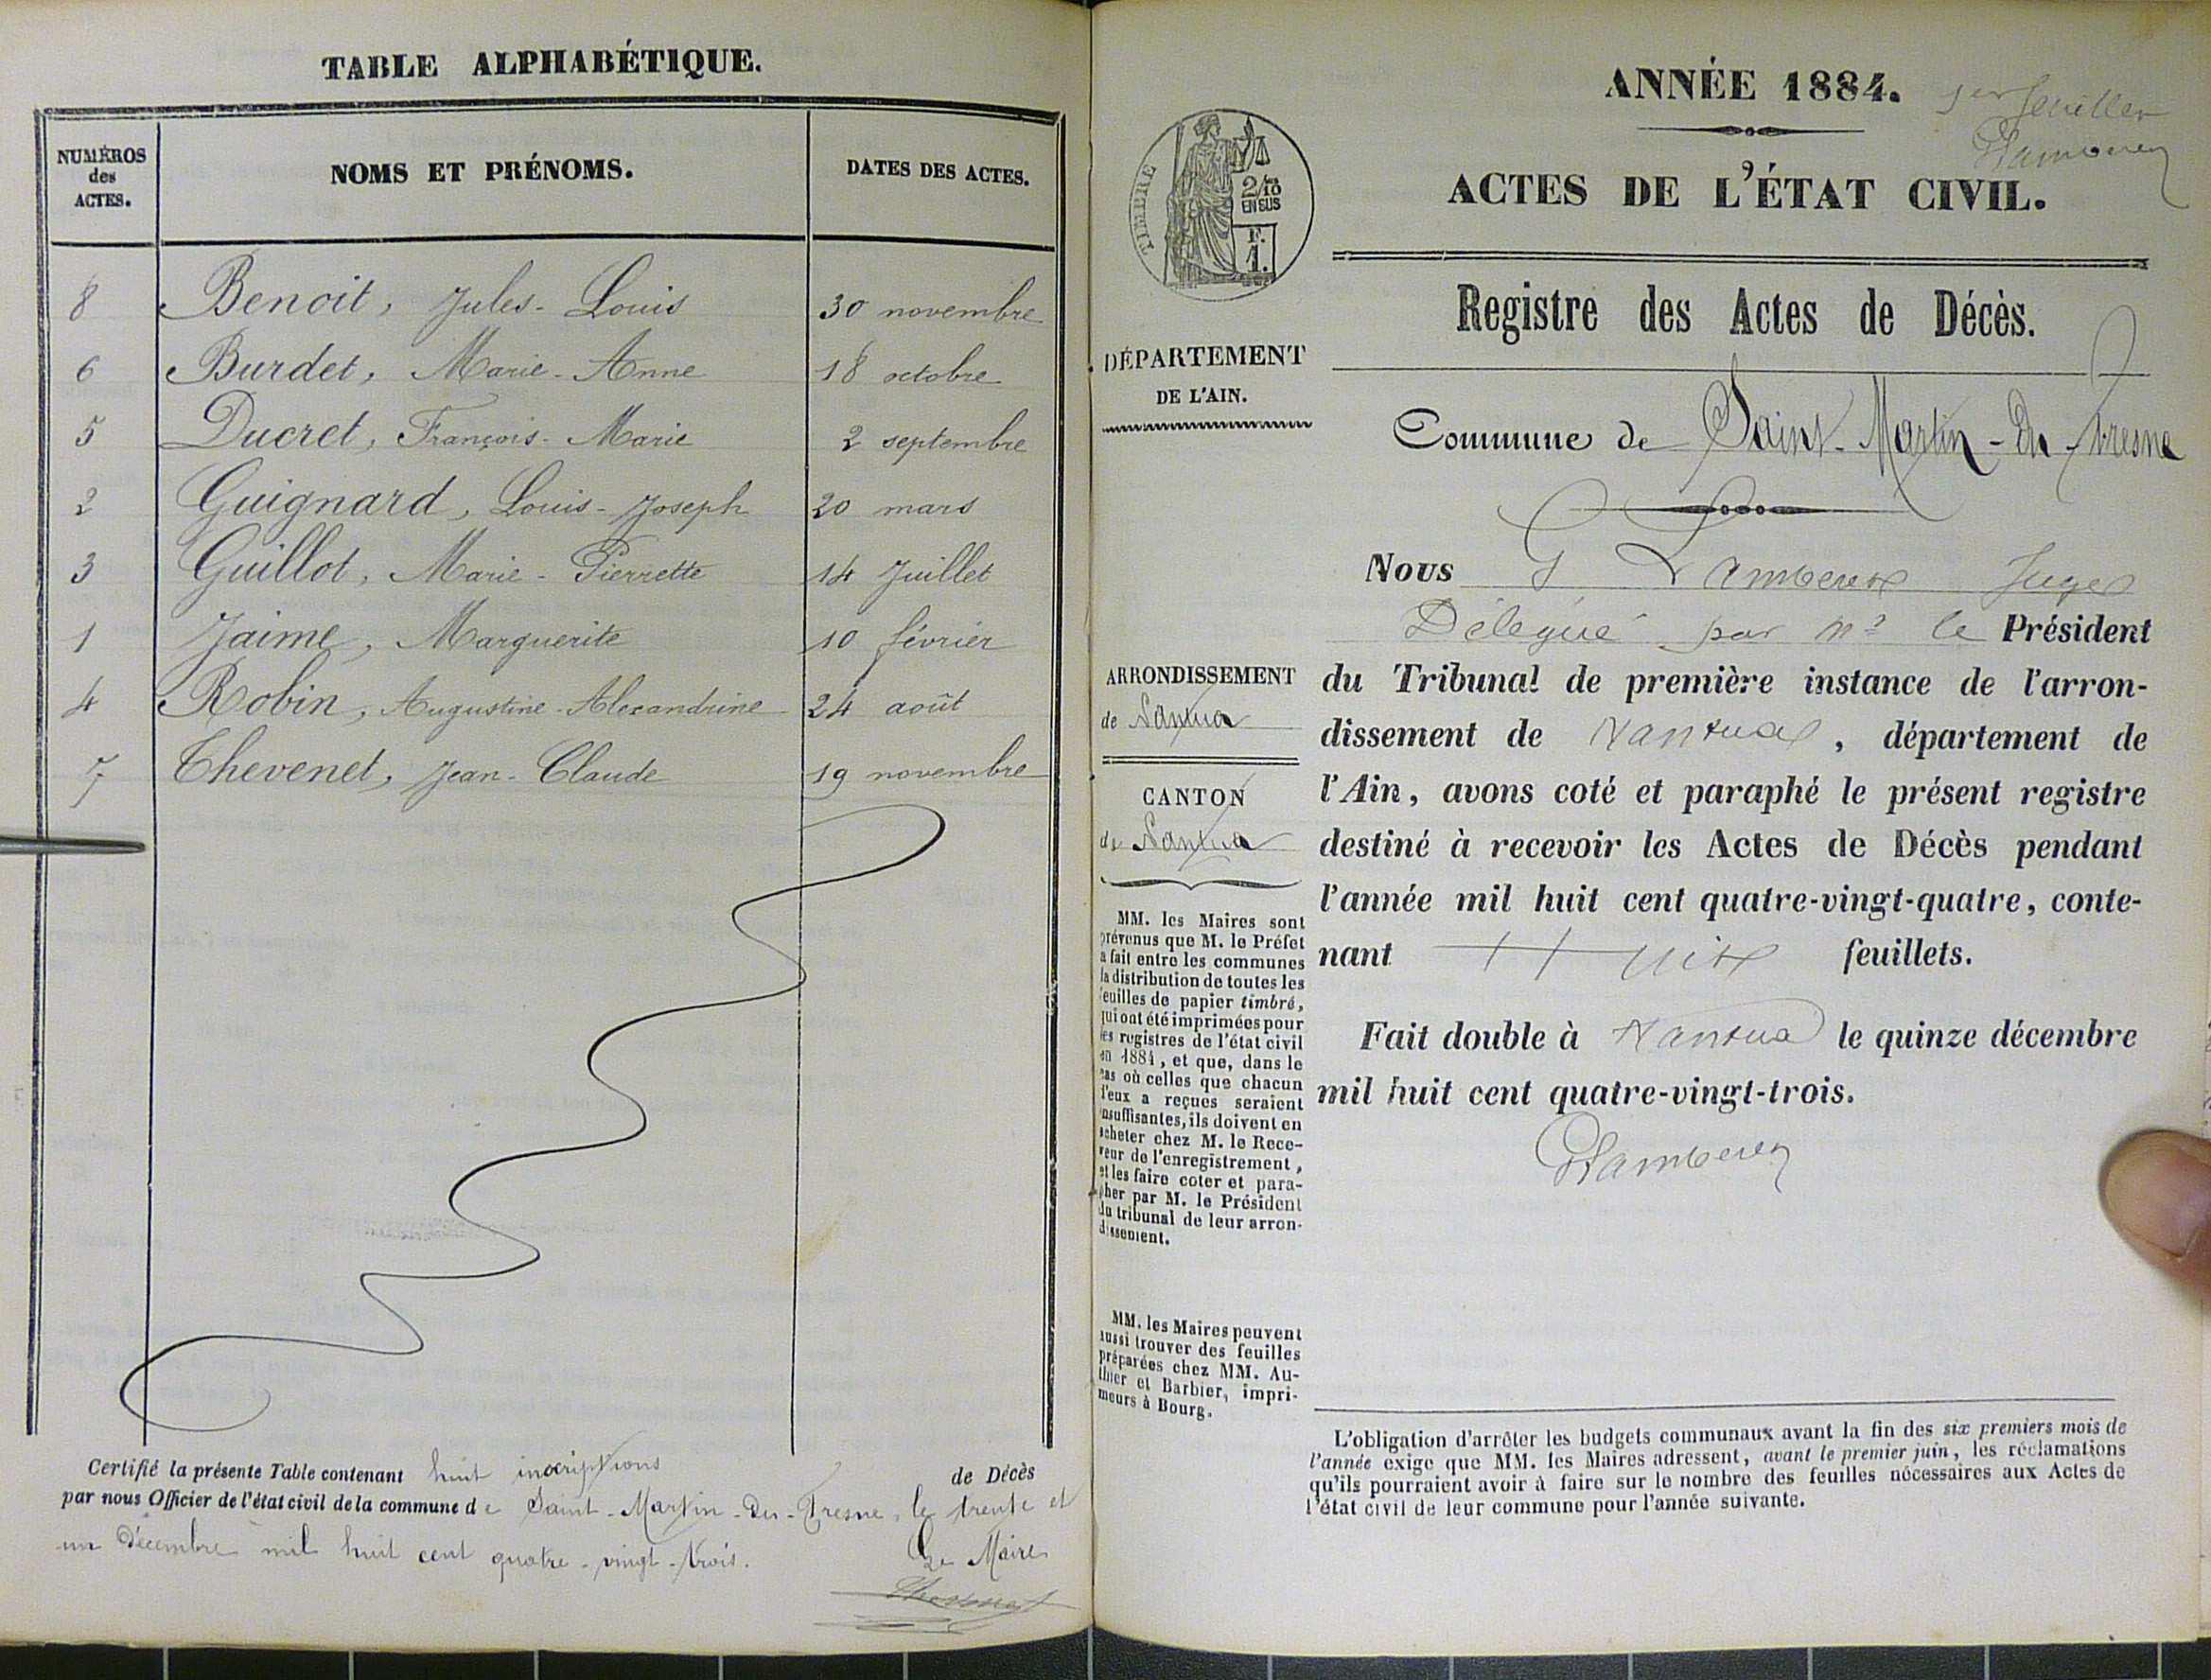 TABLE ALPHABÉTIQUE.
NUMÉROS des ACTES. NOMS ET PRÉNOMS. DATES DES ACTES.
8 Benoit, Jules-Louis 30 novembre
6 Burdet, Marie-Anne 18 octobre
5 Ducret, François-Marie 2 septembre
2 Guignard, Louis-Joseph 20 mars
3 Guillot, Marie-Pierrette 14 Juillet
1 Jaime, Marguerite 10 février
4 Robin, Augustine-Alexandrine 24 août
7 Thevenet, Jean-Claude 19 novembre
Certifié la présente Table contenant huit inscriptions de Décès
par nous Officier de l'état civil de la commune de Saint-Martin-du-Fresne, le trente et
un décembre mil huit cent quatre-vingt-trois. Le Maire
ANNÉE 1884.
1er feuillet
ACTES DE L'ÉTAT CIVIL.
TIMBRE
2/10
EN SUS
F.
1.
Registre des Actes de Décès.
DÉPARTEMENT
DE L'AIN.
Commune de Saint-Martin-du-Fresne
Nous G Juge
Délégué par Mr le Président
du Tribunal de première instance de l'arron-
dissement de Nantua, département de
l'Ain, avons coté et paraphé le présent registre
destiné à recevoir les Actes de Décès pendant
l'année mil huit cent quatre-vingt-quatre, conte-
nant Huit feuillets.
Fait double à Nantua le quinze décembre
mil huit cent quatre-vingt-trois.
ARRONDISSEMENT
de Nantua
CANTON
de Nantua
MM. les Maires sont
prévenus que M. le Préfet
a fait entre les communes
la distribution de toutes les
feuilles de papier timbré,
qui ont été imprimées pour
les registres de l'état civil
en 1884, et que, dans le
cas où celles que chacun
d'eux a reçues seraient
insuffisantes, ils doivent en
acheter chez M. le Rece-
veur de l'enregistrement,
et les faire coter et para-
pher par M. le Président
du tribunal de leur arron-
dissement.
MM. les Maires peuvent
aussi trouver des feuilles
préparées chez MM. Au-
thier et Barbier, impri-
meurs à Bourg.
L'obligation d'arrêter les budgets communaux avant la fin des six premiers mois de
l'année exige que MM. les Maires adressent, avant le premier juin, les réclamations
qu'ils pourraient avoir à faire sur le nombre des feuilles nécessaires aux Actes de
l'état civil de leur commune pour l'année suivante.